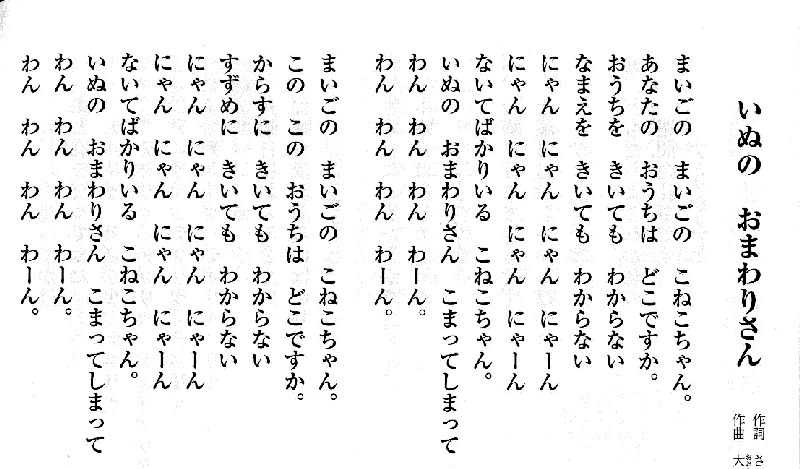 いぬの おまわりさん
作詞 さ
作曲 大
まいごの まいごの こねこちゃん。
あなたの おうちは どこですか。
おうちを きいても わからない
なまえを きいても わからない
にゃん にゃん にゃん にゃーん
にゃん にゃん にゃん にゃーん
ないてばかりいる こねこちゃん。
いぬの おまわりさん こまってしまって
わん わん わん わーん。
わん わん わん わーん。
まいごの まいごの こねこちゃん。
この この おうちは どこですか。
からすに きいても わからない
すずめに きいても わからない
にゃん にゃん にゃん にゃーん
にゃん にゃん にゃん にゃーん
ないてばかりいる こねこちゃん。
いぬの おまわりさん こまってしまって
わん わん わん わーん。
わん わん わん わーん。